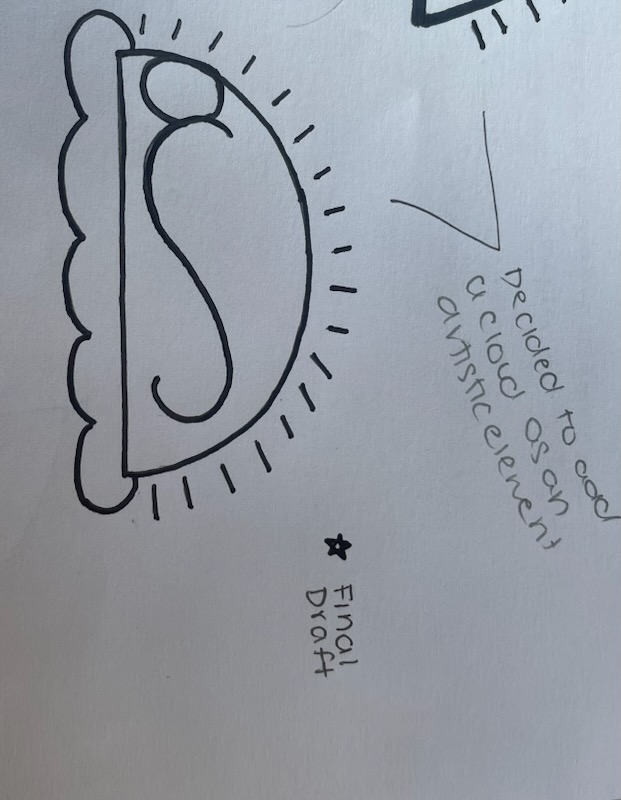 Decided to add
a cloud as an
artistic element
Final
Draft